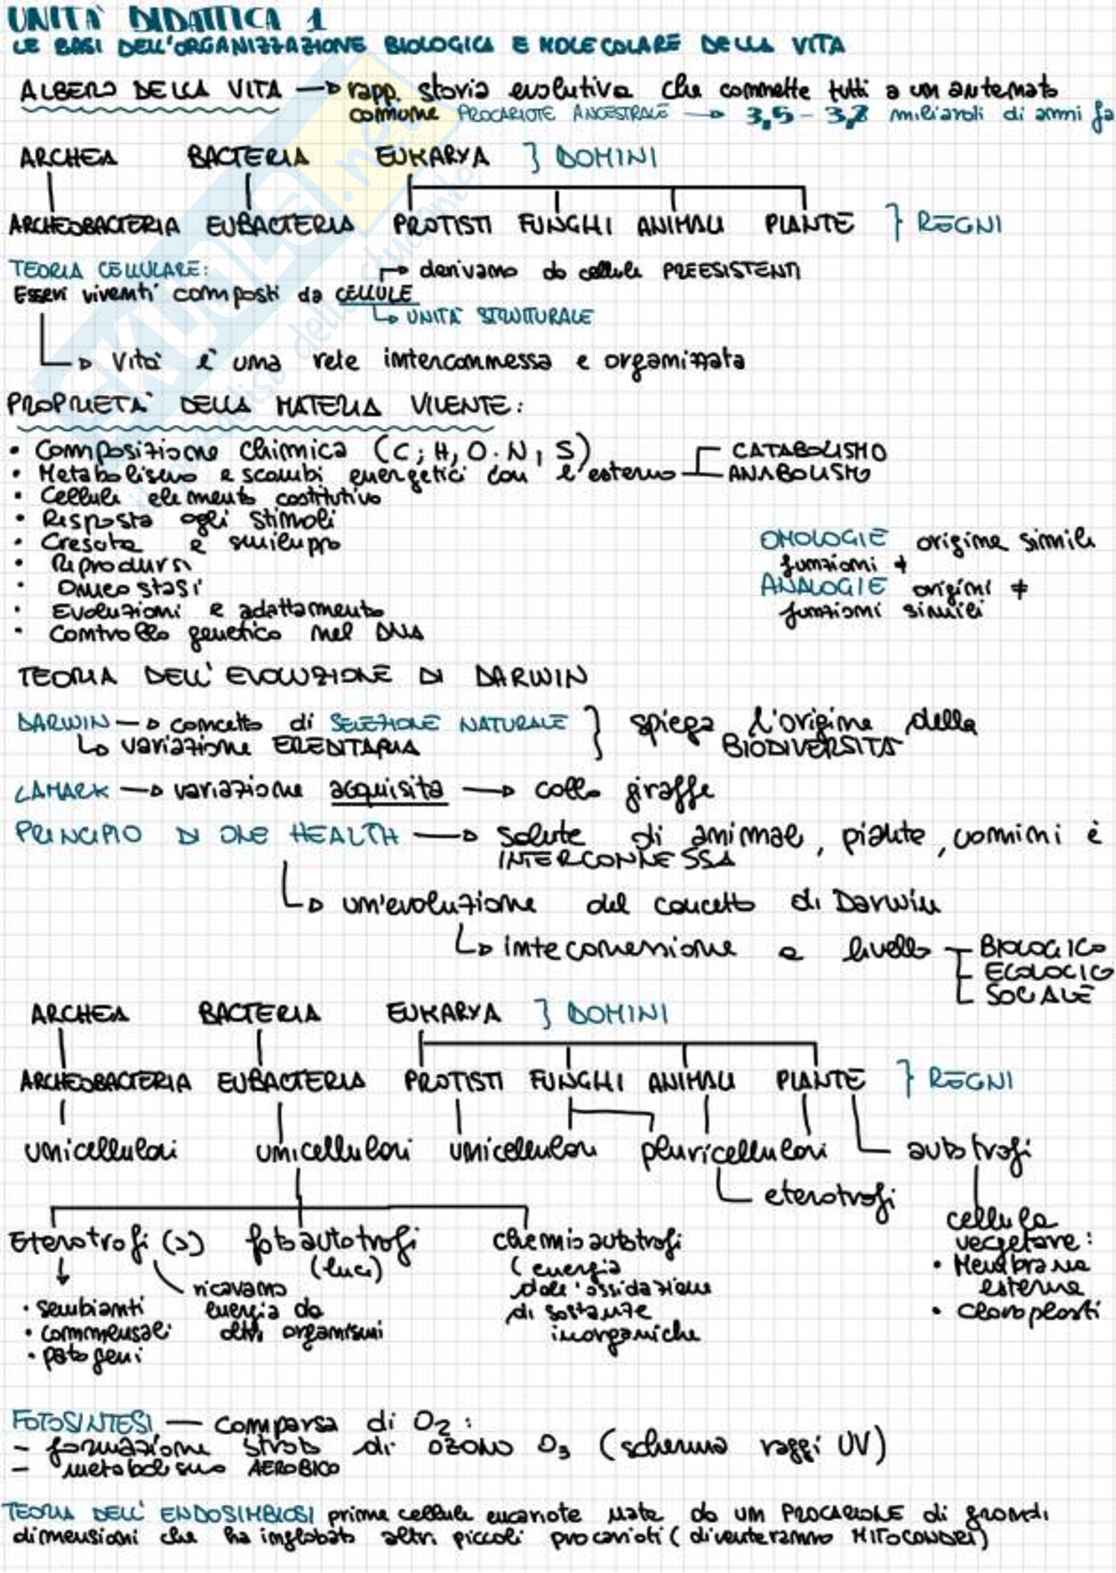 UNITA' DIDATTICA 1
LE BASI DELL'ORGANIZZAZIONE BIOLOGICA E MOLECOLARE DELLA VITA
ALBERO DELLA VITA → rapp. storia evolutiva che connette tutti a un antenato
comune PROCARIOTE ANCESTRALE → 3,5 - 3,8 miliardi di anni fa
ARCHEA BACTERIA EUKARYA } DOMINI
ARCHEOBACTERIA EUBACTERIA PROTISTI FUNGHI ANIMALI PIANTE } REGNI
TEORIA CELLULARE: → derivano da cellule PREESISTENTI
Esseri viventi composti da CELLULE
↳ UNITA' STRUTTURALE
↳ Vita è una rete interconnessa e organizzata
PROPRIETA' DELLA MATERIA VIVENTE:
• Composizione chimica (C, H, O, N, S)
• Metabolismo e scambi energetici con l'esterno CATABOLISMO
ANABOLISMO
• Cellule elemento costitutivo
• Risposta agli stimoli
• Crescita e sviluppo
• Riprodursi
• Omeostasi
• Evoluzioni e adattamento
• Controllo genetico nel DNA
OMOLOGIE origine simili
funzioni ≠
ANALOGIE origini ≠
funzioni simili
TEORIA DELL'EVOLUZIONE DI DARWIN
DARWIN → concetto di SELEZIONE NATURALE } spiega l'origine della
↳ variazione EREDITARIA BIODIVERSITÀ
LAMARK → variazione acquisita → collo giraffe
PRINCIPIO DI ONE HEALTH → salute di animale, piante, uomini è
INTERCONNESSA
↳ un'evoluzione del concetto di Darwin
↳ inteconessione a livello BIOLOGICO
ECOLOGICO
SOCIALE
ARCHEA BACTERIA EUKARYA } DOMINI
ARCHEOBACTERIA EUBACTERIA PROTISTI FUNGHI ANIMALI PIANTE } REGNI
unicellulari unicellulari unicellulari pluricellulari autotrofi
eterotrofi
Eterotrofi (s) fotoautotrofi chemioautotrofi
(luce) (energia
dall'ossidazione
di sostanze
inorganiche
• simbionti
• commensali
• patogeni
ricavano
energia da
altri organismi
cellula
vegetare:
• Membrana
esterna
• cloroplasti
FOTOSINTESI — comparsa di O2:
- formazione strato di OZONO O3 (schermo raggi UV)
- metabolismo AEROBICO
TEORIA DELL'ENDOSIMBIOSI prime cellule eucariote nate da UN PROCARIOTE di grandi
dimensioni che ha inglobato altri piccoli procarioti (diventeranno MITOCONDRI)
SKUOLA.net